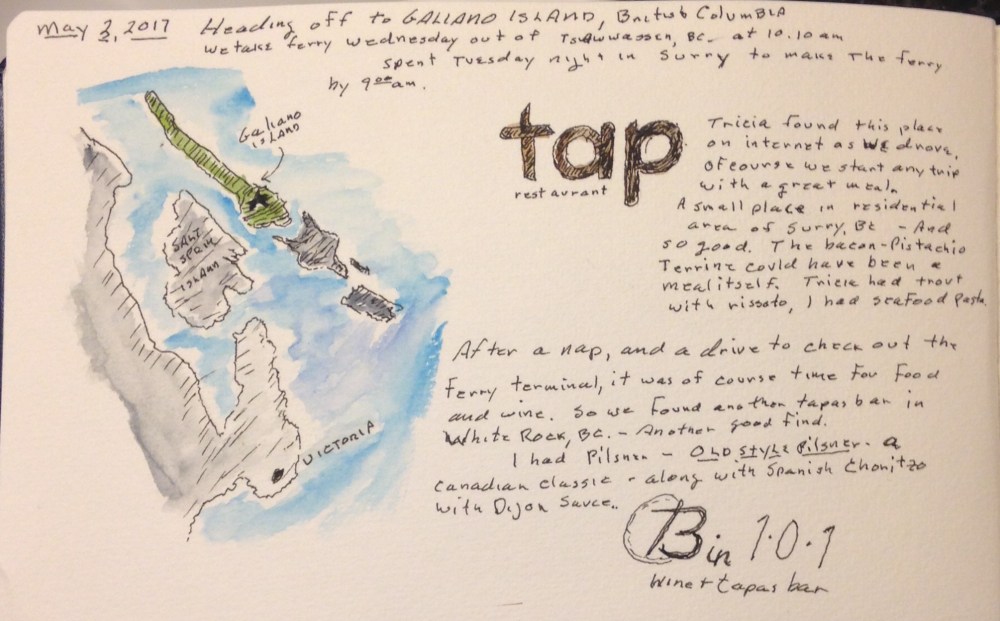 May 2, 2017
Heading off to GALIANO ISLAND, British Columbia
we take ferry Wednesday out of Tsawwassen, BC. at 10.10 am
spent Tuesday night in Surry to make the ferry
by 9 00 am.
Galiano
ISLAND
SALT
SPRIN
ISLAND
VICTORIA
tap
restaurant
Tricia found this place
on internet as we drove,
of course we start any trip
with a great meal.
A small place in residential
area of Surry, BC - And
so good. The bacon-Pistachio
Terrine could have been a
meal itself. Tricia had trout
with rissoto, I had seafood Pasta.
After a nap, and a drive to check out the
Ferry terminal, it was of course time for food
and wine. So we found another tapas bar in
White Rock, BC. - Another good find.
I had Pilsner - OLD STYLE Pilsner - a
Canadian classic - along with Spanish Choritzo
with Dijon Sauce..
Bin 1.0.1
wine + tapas bar